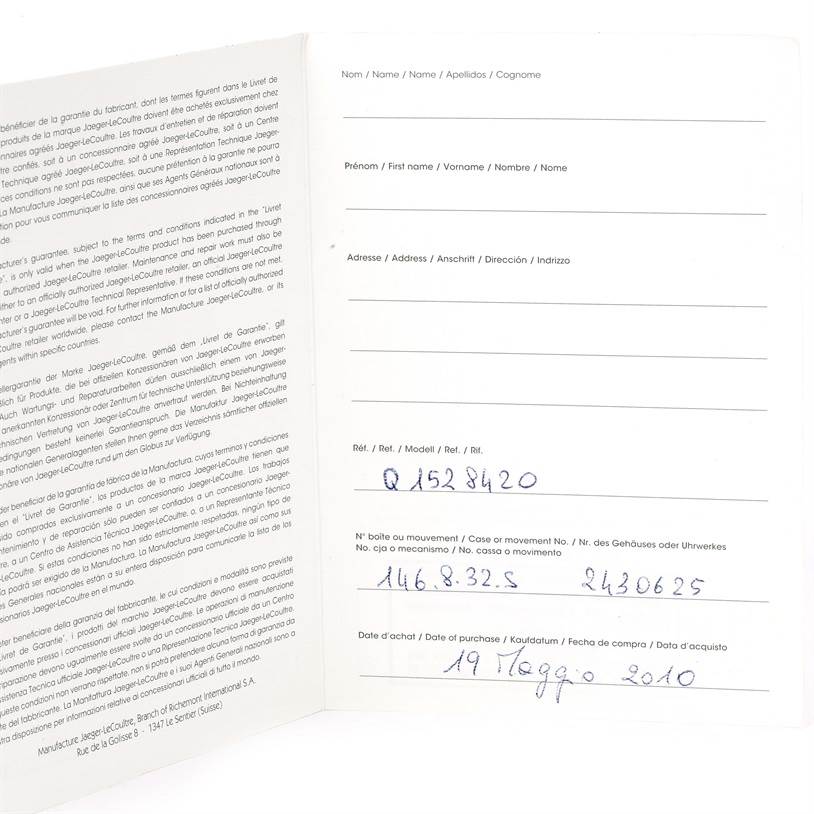 bénéficier de la garantie du fabricant, dont les termes figurent dans le Livret de
produits de la marque Jaeger-LeCoultre doivent être achetés exclusivement chez
nnaires agréés Jaeger-LeCoultre. Les travaux d'entretien et de réparation doivent
tre confiés, soit à un concessionnaire agréé Jaeger-LeCoultre, soit à un Centre
Technique agréé Jaeger-LeCoultre, soit à une Représentation Technique Jaeger-
ces conditions ne sont pas respectées, aucune prétention à la garantie ne pourra
La Manufacture Jaeger-LeCoultre, ainsi que ses Agents Généraux nationaux sont à
tion pour vous communiquer la liste des concessionnaires agréés Jaeger-LeCoultre
de.
acturer's guarantee, subject to the terms and conditions indicated in the "Livret
e", is only valid when the Jaeger-LeCoultre product has been purchased through
authorized Jaeger-LeCoultre retailer. Maintenance and repair work must also be
ither to an officially authorized Jaeger-LeCoultre retailer, an official Jaeger-LeCoultre
nter or a Jaeger-LeCoultre Technical Representative. If these conditions are not met,
acturer's guarantee will be void. For further information or for a list of officially authorized
Coultre retailer worldwide, please contact the Manufacture Jaeger-LeCoultre, or its
gents within specific countries.
ellergarantie der Marke Jaeger-LeCoultre, gemäß dem „Livret de Garantie", gilt
ßlich für Produkte, die bei offiziellen Konzessionären von Jaeger-LeCoultre erworben
Auch Wartungs- und Reparaturarbeiten dürfen ausschließlich einem von Jaeger-
anerkannten Konzessionär oder Zentrum für technische Unterstützung beziehungsweise
chnischen Vertretung von Jaeger-LeCoultre anvertraut werden. Bei Nichteinhaltung
edingungen besteht keinerlei Garantieanspruch. Die Manufaktur Jaeger-LeCoultre
e nationalen Generalagenten stellen Ihnen gerne das Verzeichnis sämtlicher offiziellen
onäre von Jaeger-LeCoultre rund um den Globus zur Verfügung.
der beneficiar de la garantía de fábrica de la Manufactura, cuyos terminos y condiciones
en el "Livret de Garantie", los productos de la marca Jaeger-LeCoultre tienen que
sido comprados exclusivamente a un concesionario Jaeger-LeCoultre. Los trabajos
ntenimiento y de reparación sólo pueden ser confiados a un concesionario Jaeger-
re, a un Centro de Asistencia Técnica Jaeger-LeCoultre, o, a un Representante Técnico
-LeCoultre. Si estas condiciones no han sido estrictamente respetadas, ningún tipo de
ía podrá ser exigido de la Manufactura. La Manufactura Jaeger-LeCoultre así como sus
s Generales nacionales están a su entera disposición para comunicarle la lista de los
sionarios Jaeger-LeCoultre en el mundo.
ter beneficiare della garanzia del fabbricante, le cui condizioni e modalità sono previste
Livret de Garantie", i prodotti del marchio Jaeger-LeCoultre devono essere acquistati
sivamente presso i concessionari ufficiali Jaeger-LeCoultre. Le operazioni di manutenzione
riparazione devono ugualmente essere svolte da un concessionario ufficiale da un Centro
sistenza Tecnica ufficiale Jaeger-LeCoultre o una Ripresentazione Tecnica Jaeger-LeCoultre.
ueste condizioni non verrano rispettate, non si potrà pretendere alcuna forma di garanzia da
te del fabbricante. La Manifattura Jaeger-LeCoultre e i suoi Agenti Generali nazionali sono a
tra disposizione per informazioni relative ai concessionari ufficiali di tutto il mondo.
Manufacture Jaeger-LeCoultre, Branch of Richemont International S.A.
Rue de la Golisse 8 - 1347 Le Sentier (Suisse)
Nom / Name / Name / Apellidos / Cognome
Prénom / First name / Vorname / Nombre / Nome
Adresse / Address / Anschrift / Dirección / Indrizzo
Réf. / Ref. / Modell / Ref. / Rif.
Q 1528420
N° boîte ou mouvement / Case or movement No. / Nr. des Gehäuses oder Uhrwerkes
No. cja o mecanismo / No. cassa o movimento
146.8.32.S 2430625
Date d'achat / Date of purchase / Kaufdatum / Fecha de compra / Data d'acquisto
19 Maggio 2010